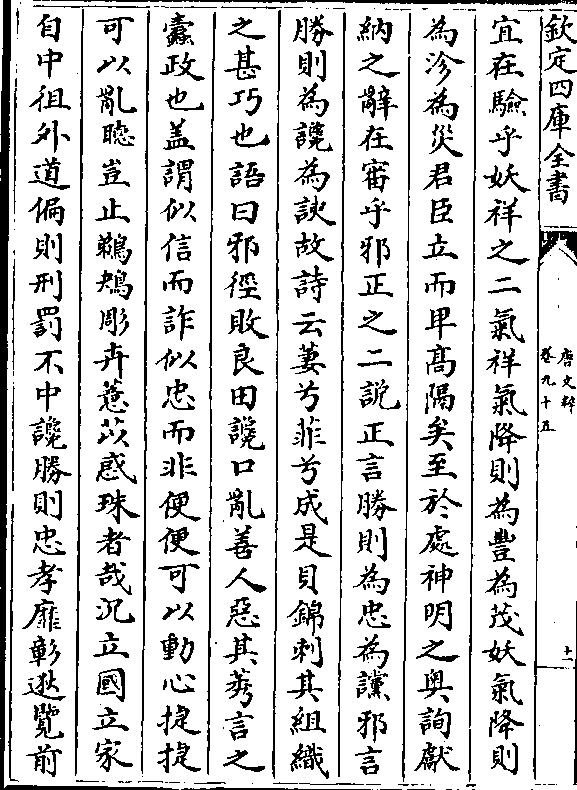 欽定四庫全書
唐文粹
卷九十五
十一
宜在驗乎妖祥之二氣祥氣降則為豐為茂妖氣降則
為沴為災君臣立而卑髙隔矣至於處神明之奥詢獻
納之辭在審乎邪正之二説正言勝則為忠為讜邪言
勝則為讒為諛故詩云萋兮菲兮成是貝錦刺其組織
之甚巧也語曰邪徑敗良田讒口亂善人惡其莠言之
蠹政也盖謂似信而詐似忠而非便便可以動心捷捷
可以亂聴豈止鵜鴂彫卉薏苡惑珠者哉况立國立家
自中徂外道偏則刑罰不中讒勝則忠孝靡彰逖覽前